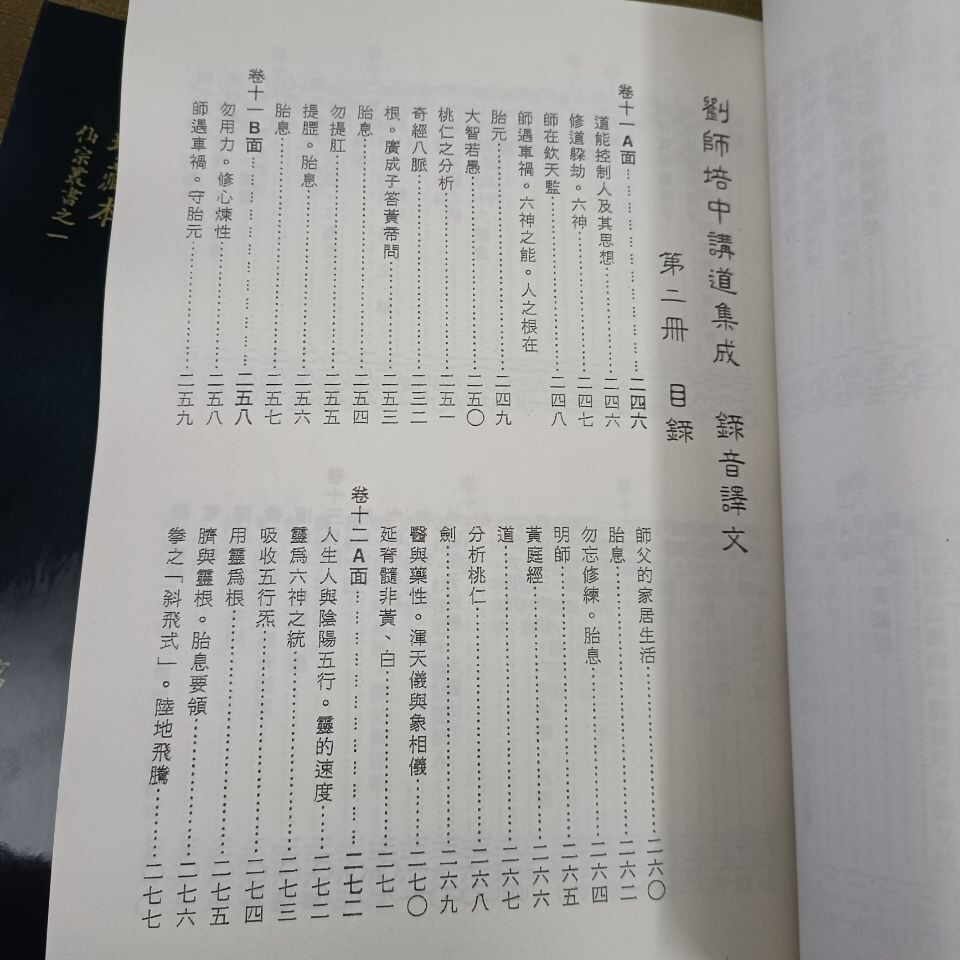 劉師培中講道集成　錄音譯文
第二冊　目錄
卷十一A面………………二四六
道能控制人及其思想………………二四六
修道躲劫。六神………………二四七
師在欽天監………………二四八
師遇車禍。六神之能。人之根在
胎元………………二四九
大智若愚………………二五〇
桃仁之分析………………二五一
奇經八脈………………二三二
根。廣成子答黃帝問………………二五三
胎息………………二五四
勿提肛………………二五五
提膻。胎息………………二五六
胎息………………二五七
卷十一B面………………二五八
勿用力。修心煉性………………二五八
師遇車禍。守胎元………………二五九
師父的家居生活………………二六〇
胎息………………二六二
勿忘修練。胎息………………二六四
明師………………二六五
黃庭經………………二六六
道………………二六七
分析桃仁………………二六八
劍………………二六九
醫與藥性。渾天儀與象相儀………………二七〇
延脊髓非黃、白………………二七一
卷十二A面………………二七二
人生人與陰陽五行。靈的速度………………二七二
靈為六神之統………………二七三
吸收五行炁………………二七四
用靈為根………………二七五
臍與靈根。胎息要領………………二七六
拳之「斜飛式」。陸地飛騰………………二七七
仙宗叢書之一